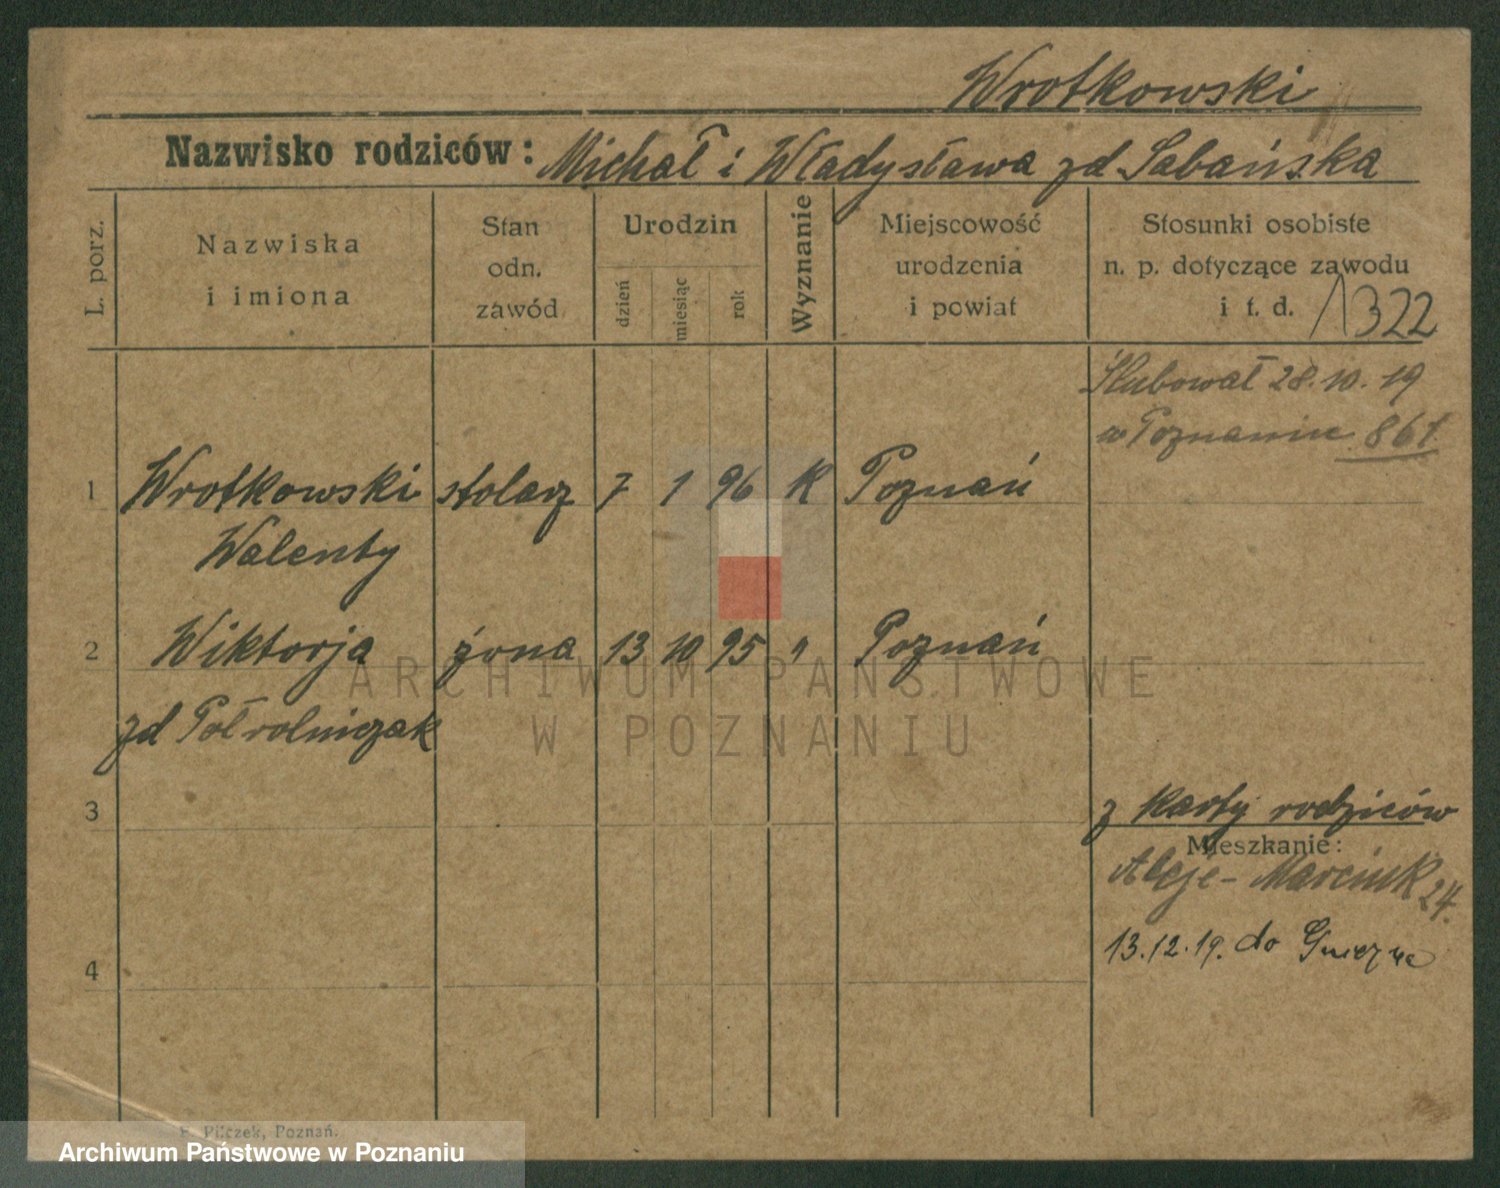 Wrotkowski
Nazwisko rodziców: Michał i Władysława zd Sabańska
L. porz.
Nazwiska
i imiona
Stan
odn.
zawód
Urodzin
dzień
miesiąc
rok
Wyznanie
Miejscowość
urodzenia
i powiat
Stosunki osobiste
n. p. dotyczące zawodu
i t. d.
1322
Ślubował 28.10.19
w Poznaniu 861
1 Wrotkowski stolarz 7 1 96 K Poznań
Walenty
2 Wiktorja żona 13 10 95 " Poznań
zd Półrolniczak
ARCHIWUM PAŃSTWOWE
W POZNANIU
3
z karty rodziców
Mieszkanie:
Aleje-Marcink 24.
13.12.19. do Gniezna
4
F. Pilczek, Poznań.
Archiwum Państwowe w Poznaniu